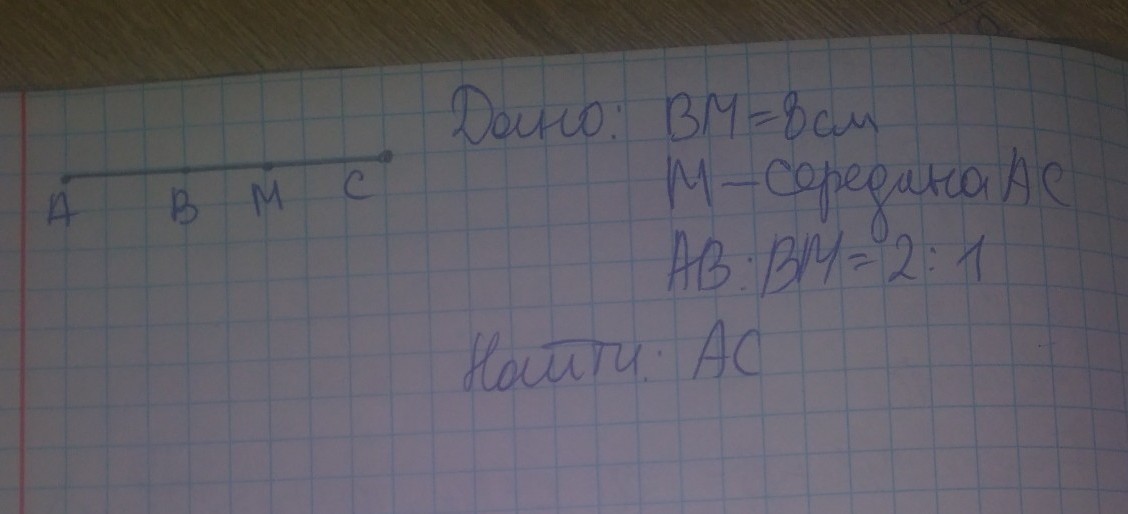 Дано: BM=8см
M – середина AC
AB:BM=2:1
A B M C
Найти: AC